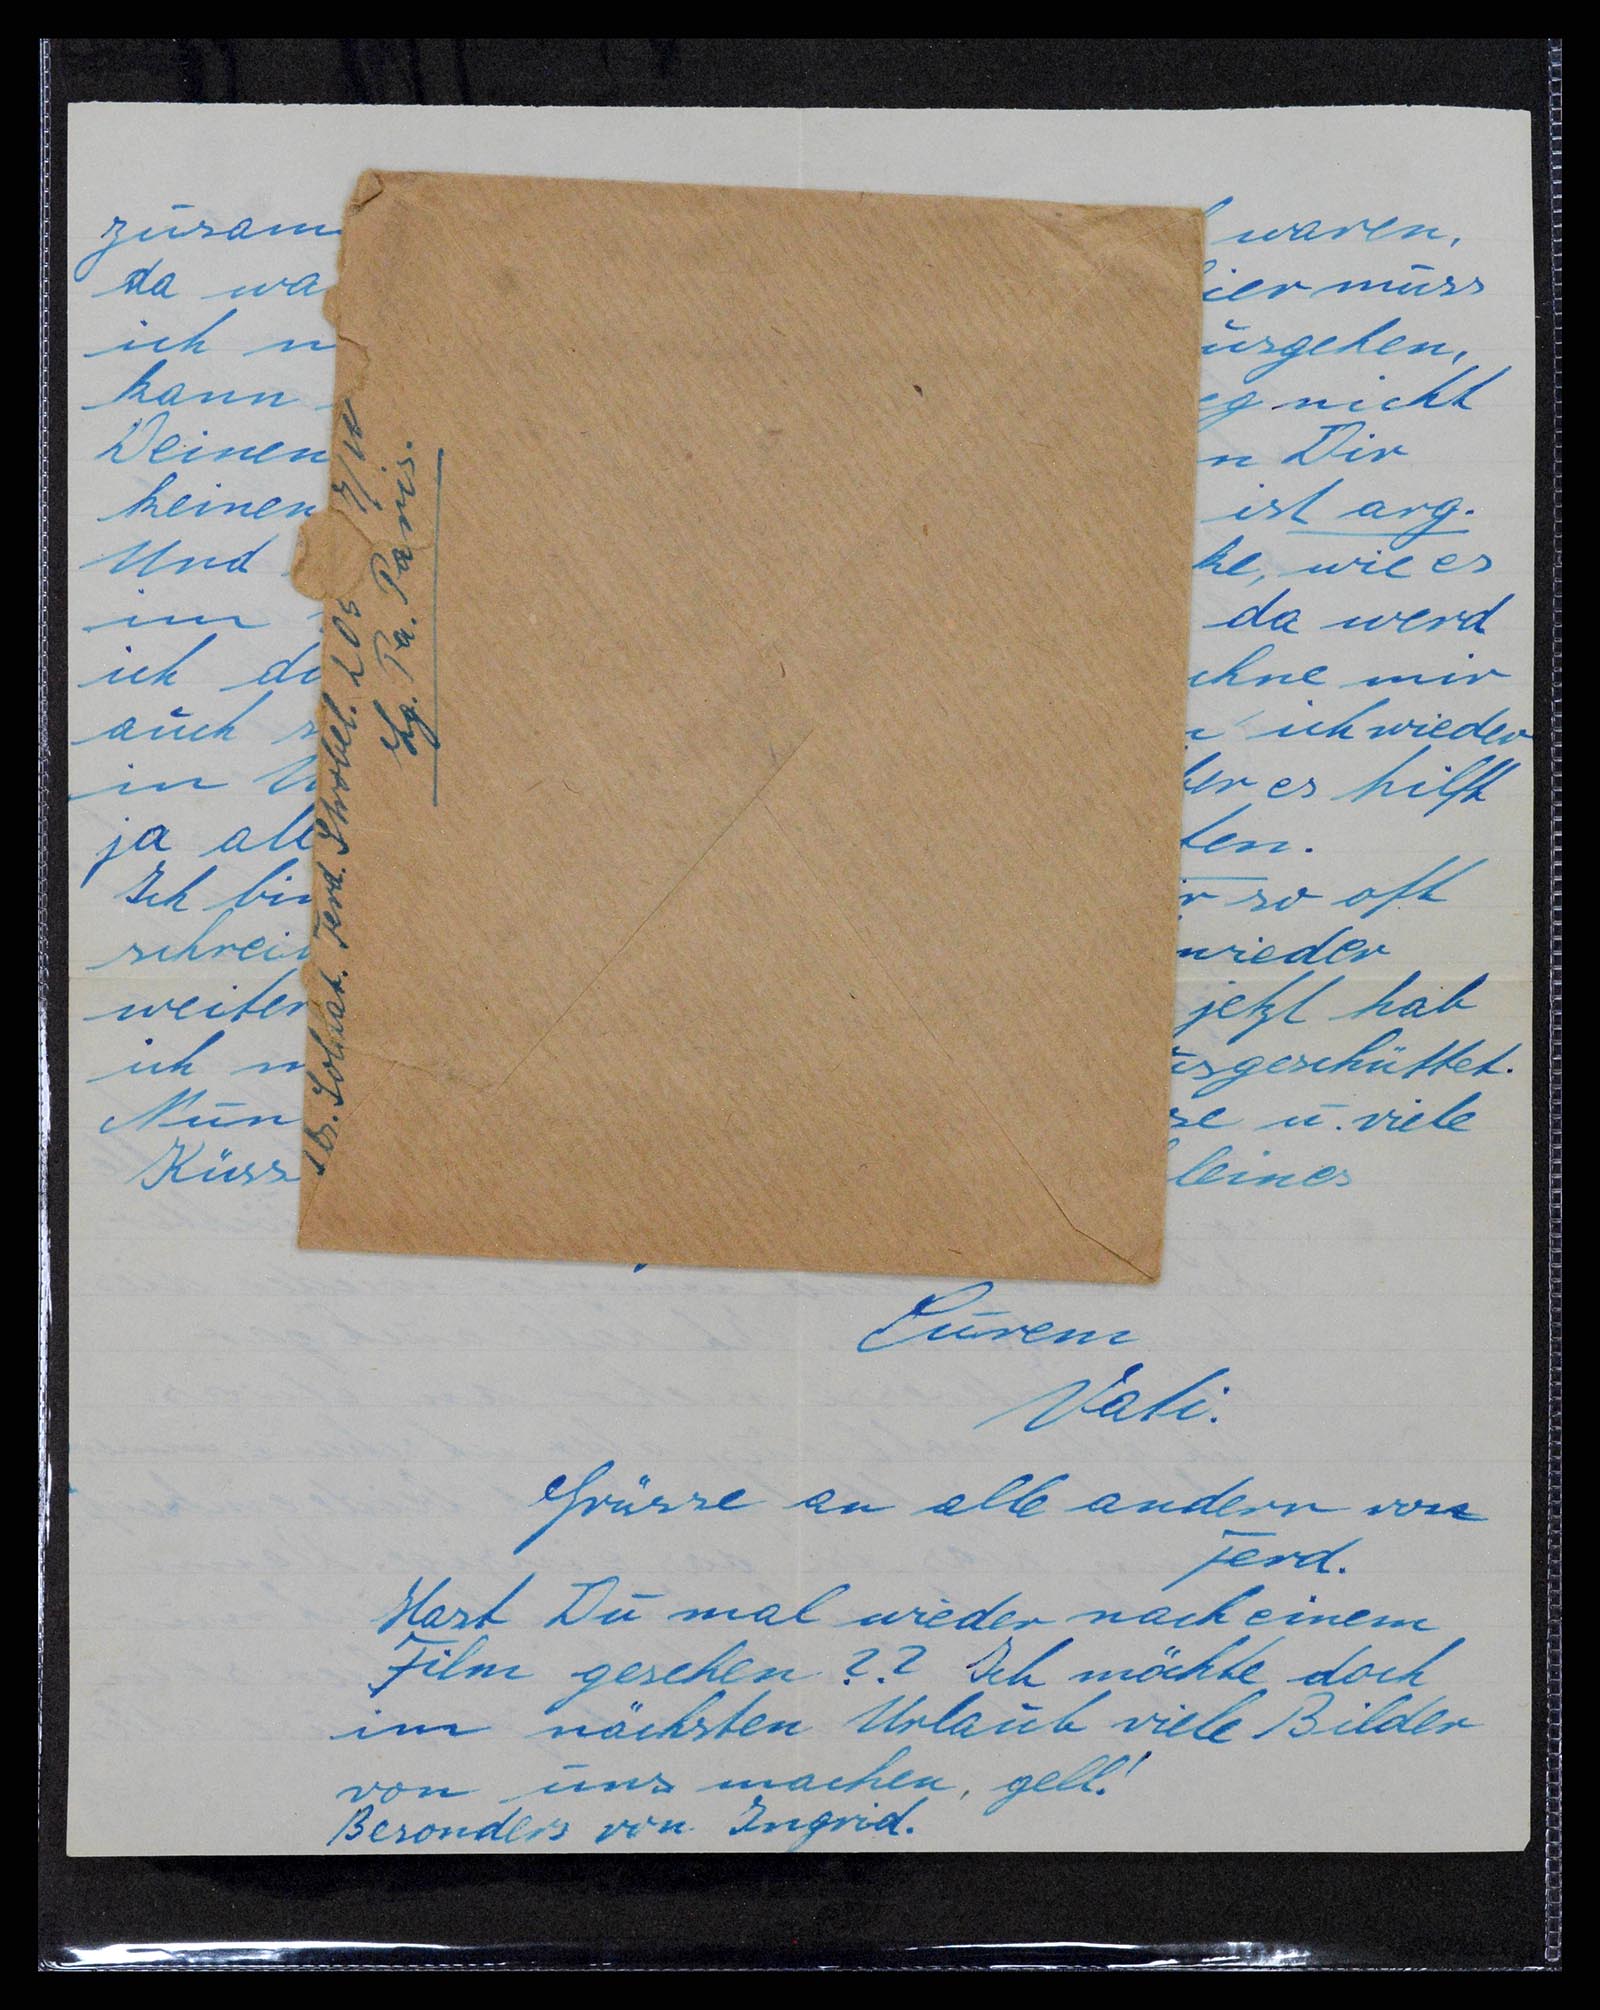 zusam waren,
da wa ier muss
ich n usgehen,
kann eg nicht
Deinen n Dir
keinen ist arg.
Und ke, wie es
im da werd
ich di ehne mir
auch s ich wieder
in U ber es hilft
ja all ten.
Ich bin ir so oft
schreib wieder
weiter jetzt hab
ich m usgeschüttet.
Nun se u. viele
Küss leines
Eurem
Vati.
Grüsse an alle andern von
Ferd.
Hast Du mal wieder nach einem
Film gesehen?? Ich möchte doch
im nächsten Urlaub viele Bilder
von uns machen, gell!
Besonders von Ingrid.
Abs. Soldat. Ferd. Strobel. 205
Lg. Pa. Paris.